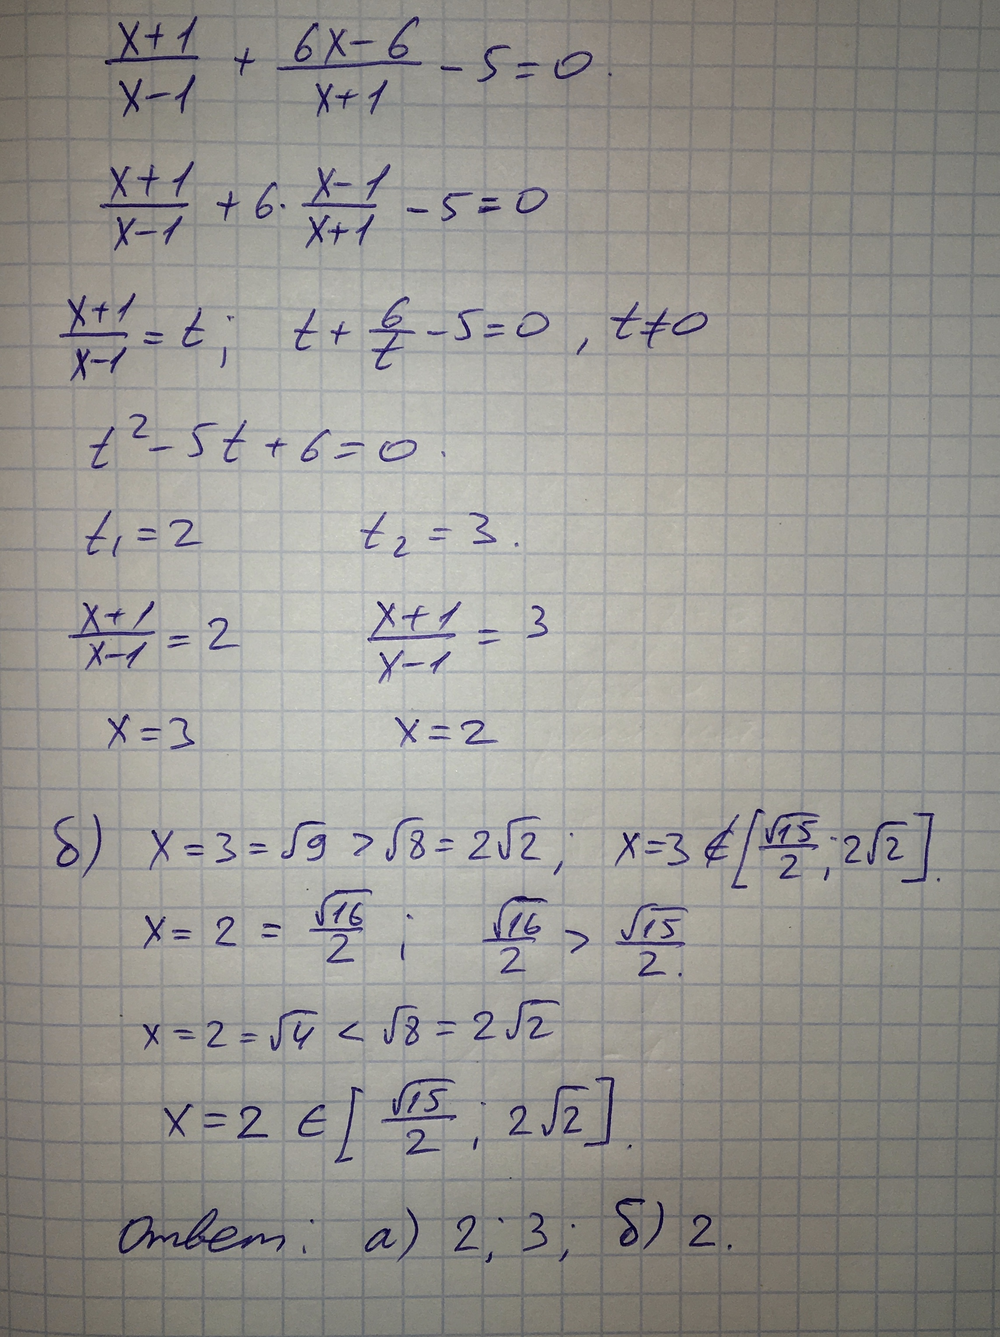 (x+1)/(x-1) + (6x-6)/(x+1) - 5 = 0.
(x+1)/(x-1) + 6 · (x-1)/(x+1) - 5 = 0
(x+1)/(x-1) = t; t + 6/t - 5 = 0, t ≠ 0
t² - 5t + 6 = 0.
t₁ = 2 t₂ = 3.
(x+1)/(x-1) = 2 (x+1)/(x-1) = 3
x = 3 x = 2
б) x = 3 = √9 > √8 = 2√2; x = 3 ∉ [√15/2; 2√2].
x = 2 = √16/2; √16/2 > √15/2.
x = 2 = √4 < √8 = 2√2
x = 2 ∈ [√15/2; 2√2].
Ответ: а) 2; 3; б) 2.